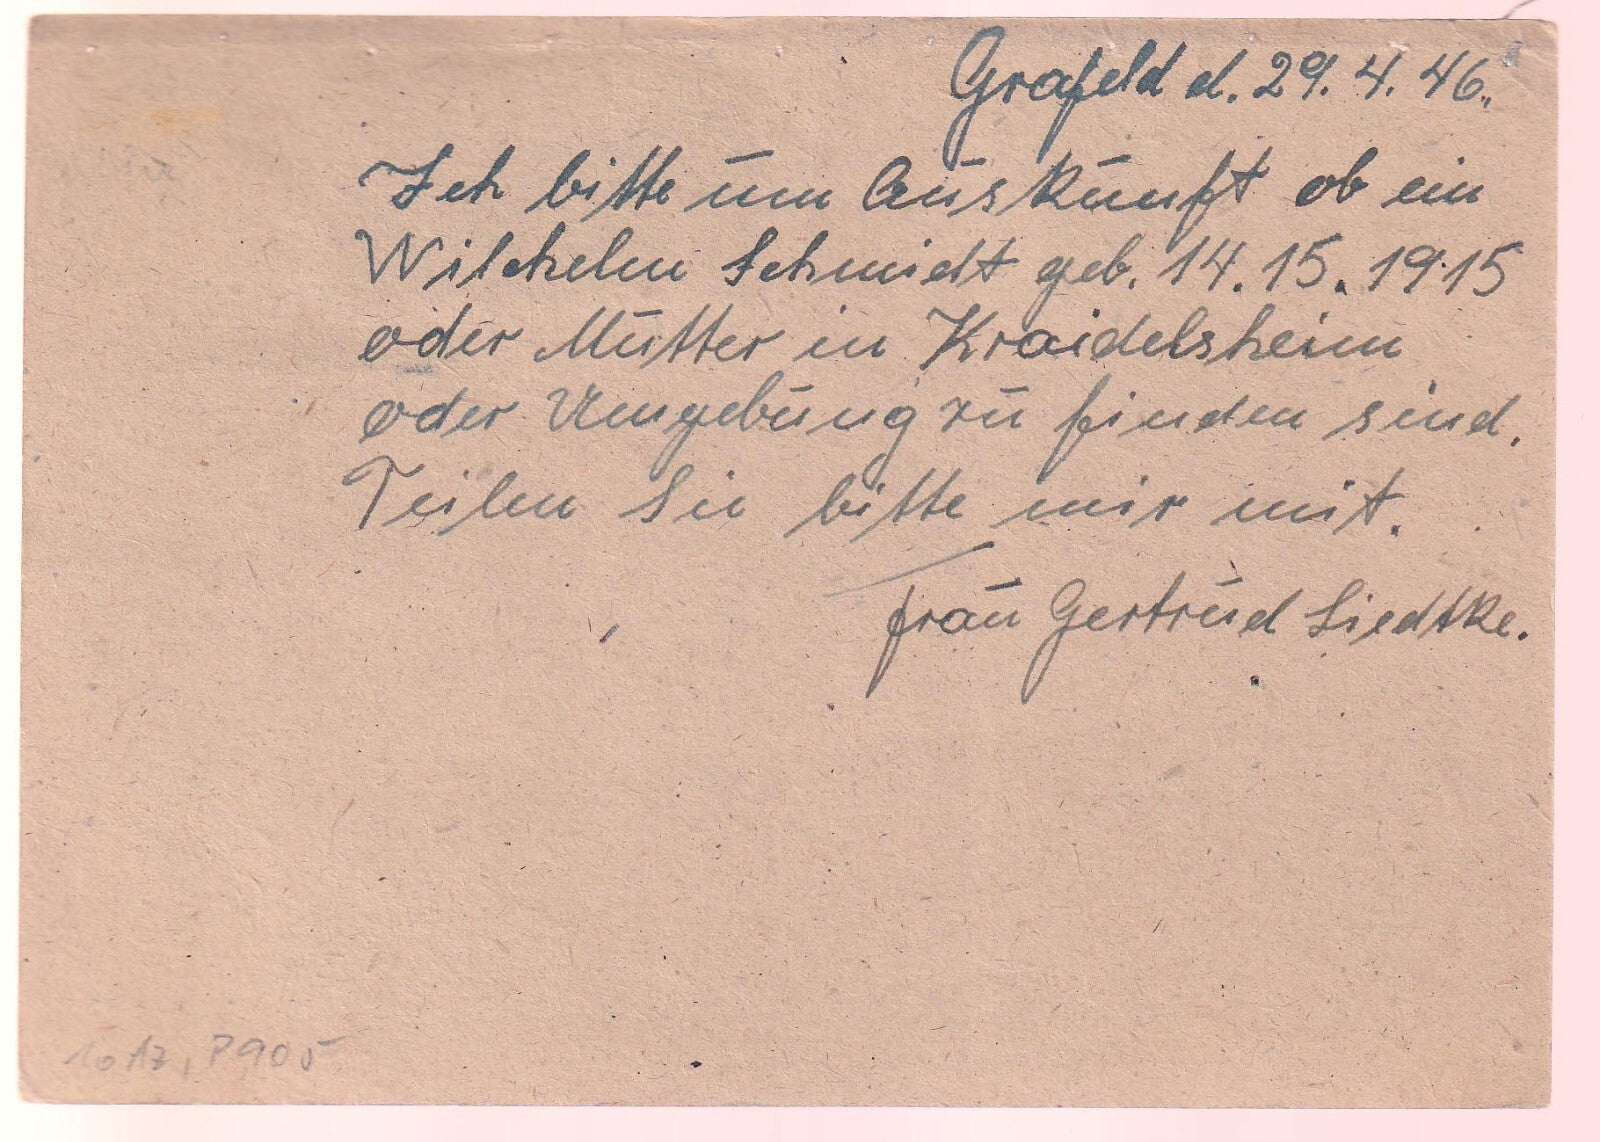 Grafeld d. 29. 4. 46.
Ich bitte um Auskunft ob ein
Wilehelm Schmidt geb. 14. 15. 1915
oder Mutter in Kraidelsheim
oder Umgebung zu finden sind.
Teilen Sie bitte mir mit.
Frau Gertrud Liedtke.
10 AZ, P905